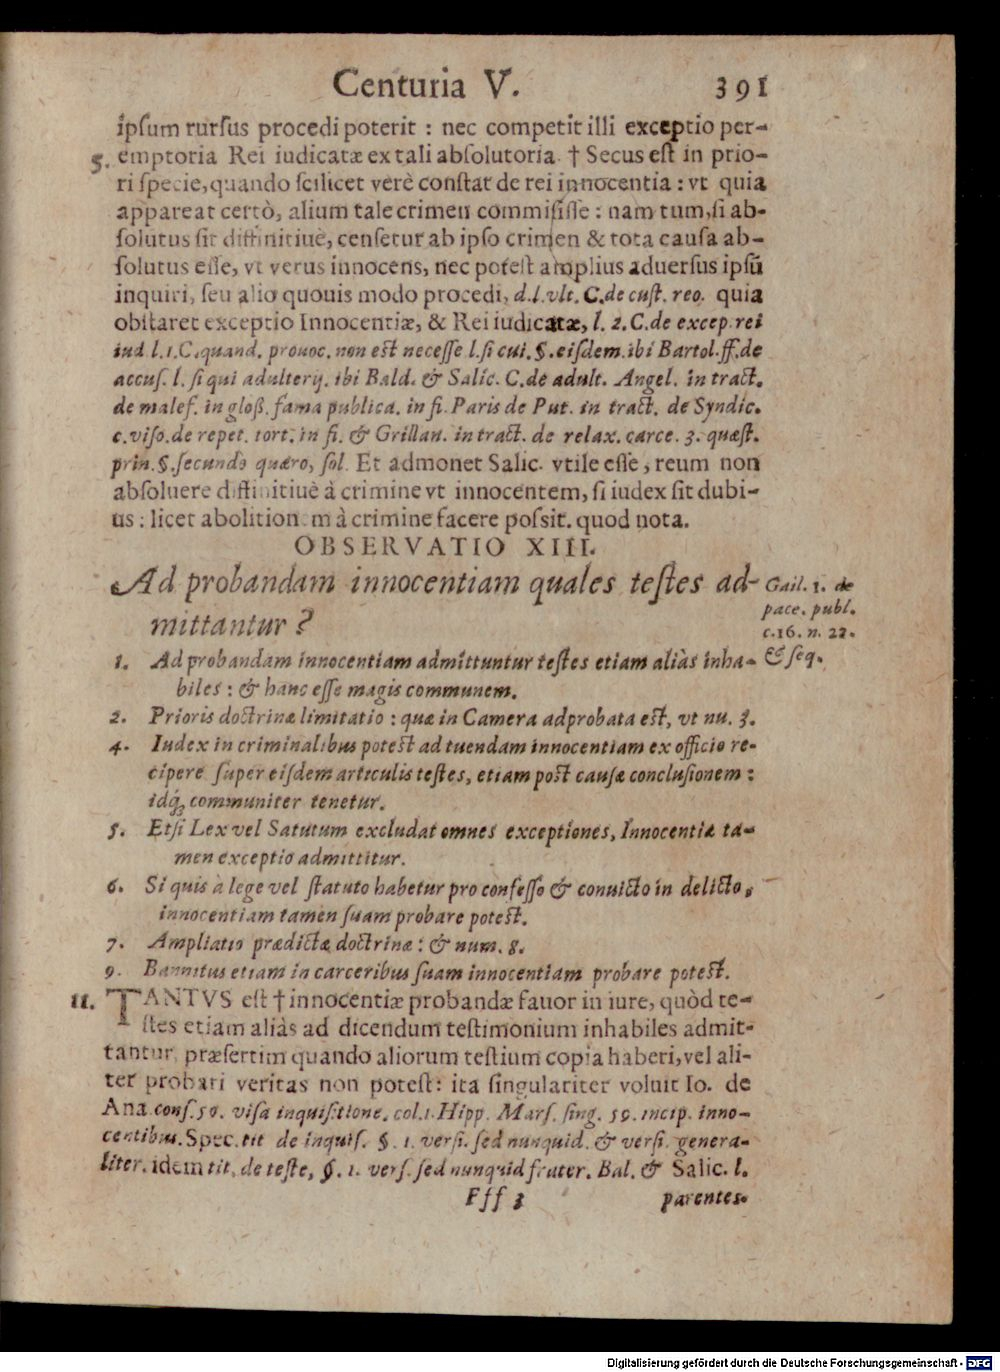 Centuria V. 391
ipſum rurſus procedi poterit : nec competit illi exceptio per-
5. emptoria Rei iudicatæ ex tali abſolutoria. † Secus eſt in prio-
ri ſpecie, quando ſcilicet verè conſtat de rei innocentia : vt quia
appareat certò, alium tale crimen commiſiſſe : nam tum, ſi ab-
ſolutus ſit diffinitiuè, cenſetur ab ipſo crimen & tota cauſa ab-
ſolutus eſſe, vt verus innocens, nec poteſt amplius aduerſus ipsū
inquiri, ſeu alio quouis modo procedi, d.l.vlt. C.de cuſt. reo. quia
obſtaret exceptio Innocentiæ, & Rei iudicatæ, l. 2. C. de excep. rei
iud l.1.C.quand. prouoc. non eſt neceſſe l.ſi cui. §. eiſdem. ibi Bartol. ff. de
accuſ. l. ſi qui adulterij. ibi Bald. & Salic. C. de adult. Angel. in tract.
de maleſ. in gloß. fama publica. in fi. Paris de Put. in tract. de Syndic.
c. viſo. de repet. tort. in fi. & Grillan. in tract. de relax. carce. 3. quæſt.
prin. §. ſecundò quæro, ſol. Et admonet Salic. vtile eſſe, reum non
abſoluere diffinitiuè à crimine vt innocentem, ſi iudex ſit dubi-
us : licet abolitionem à crimine facere poſsit. quod nota.
OBSERVATIO XIII.
Ad probandam innocentiam quales teſtes ad-
mittantur ?
Gail. 1. de
pace. publ.
c.16. n. 22.
& ſeq.
1. Ad probandam innocentiam admittuntur teſtes etiam aliàs inha-
biles : & hanc eſſe magis communem.
2. Prioris doctrinæ limitatio : quæ in Camera adprobata eſt, vt nu. 3.
4. Iudex in criminalibus poteſt ad tuendam innocentiam ex officio re-
cipere ſuper eiſdem articulis teſtes, etiam poſt cauſæ concluſionem :
idq́; communiter tenetur.
5. Etſi Lex vel Satutum excludat omnes exceptiones, Innocentiæ ta-
men exceptio admittitur.
6. Si quis à lege vel ſtatuto habetur pro confeſſo & conuicto in delicto,
innocentiam tamen ſuam probare poteſt.
7. Ampliatio prædictæ doctrinæ : & num. 8.
9. Bannitus etiam in carceribus ſuam innocentiam probare poteſt.
11. TANTVS eſt † innocentiæ probandæ fauor in iure, quòd te-
ſtes etiam aliàs ad dicendum teſtimonium inhabiles admit-
tantur, præſertim quando aliorum teſtium copia haberi, vel ali-
ter probari veritas non poteſt: ita ſingulariter voluit Io. de
Ana. conſ. 50. viſa inquiſitione. col.1. Hipp. Marſ. ſing. 59. incip. inno-
centibus. Spec. tit de inquiſ. §. 1. verſi. ſed nunquid. & verſi. genera-
liter. idem tit. de teſte, §. 1. verſ. ſed nunquid frater. Bal. & Salic. l.
Fff 3 parentes.
Digitalisierung gefördert durch die Deutsche Forschungsgemeinschaft - DFG